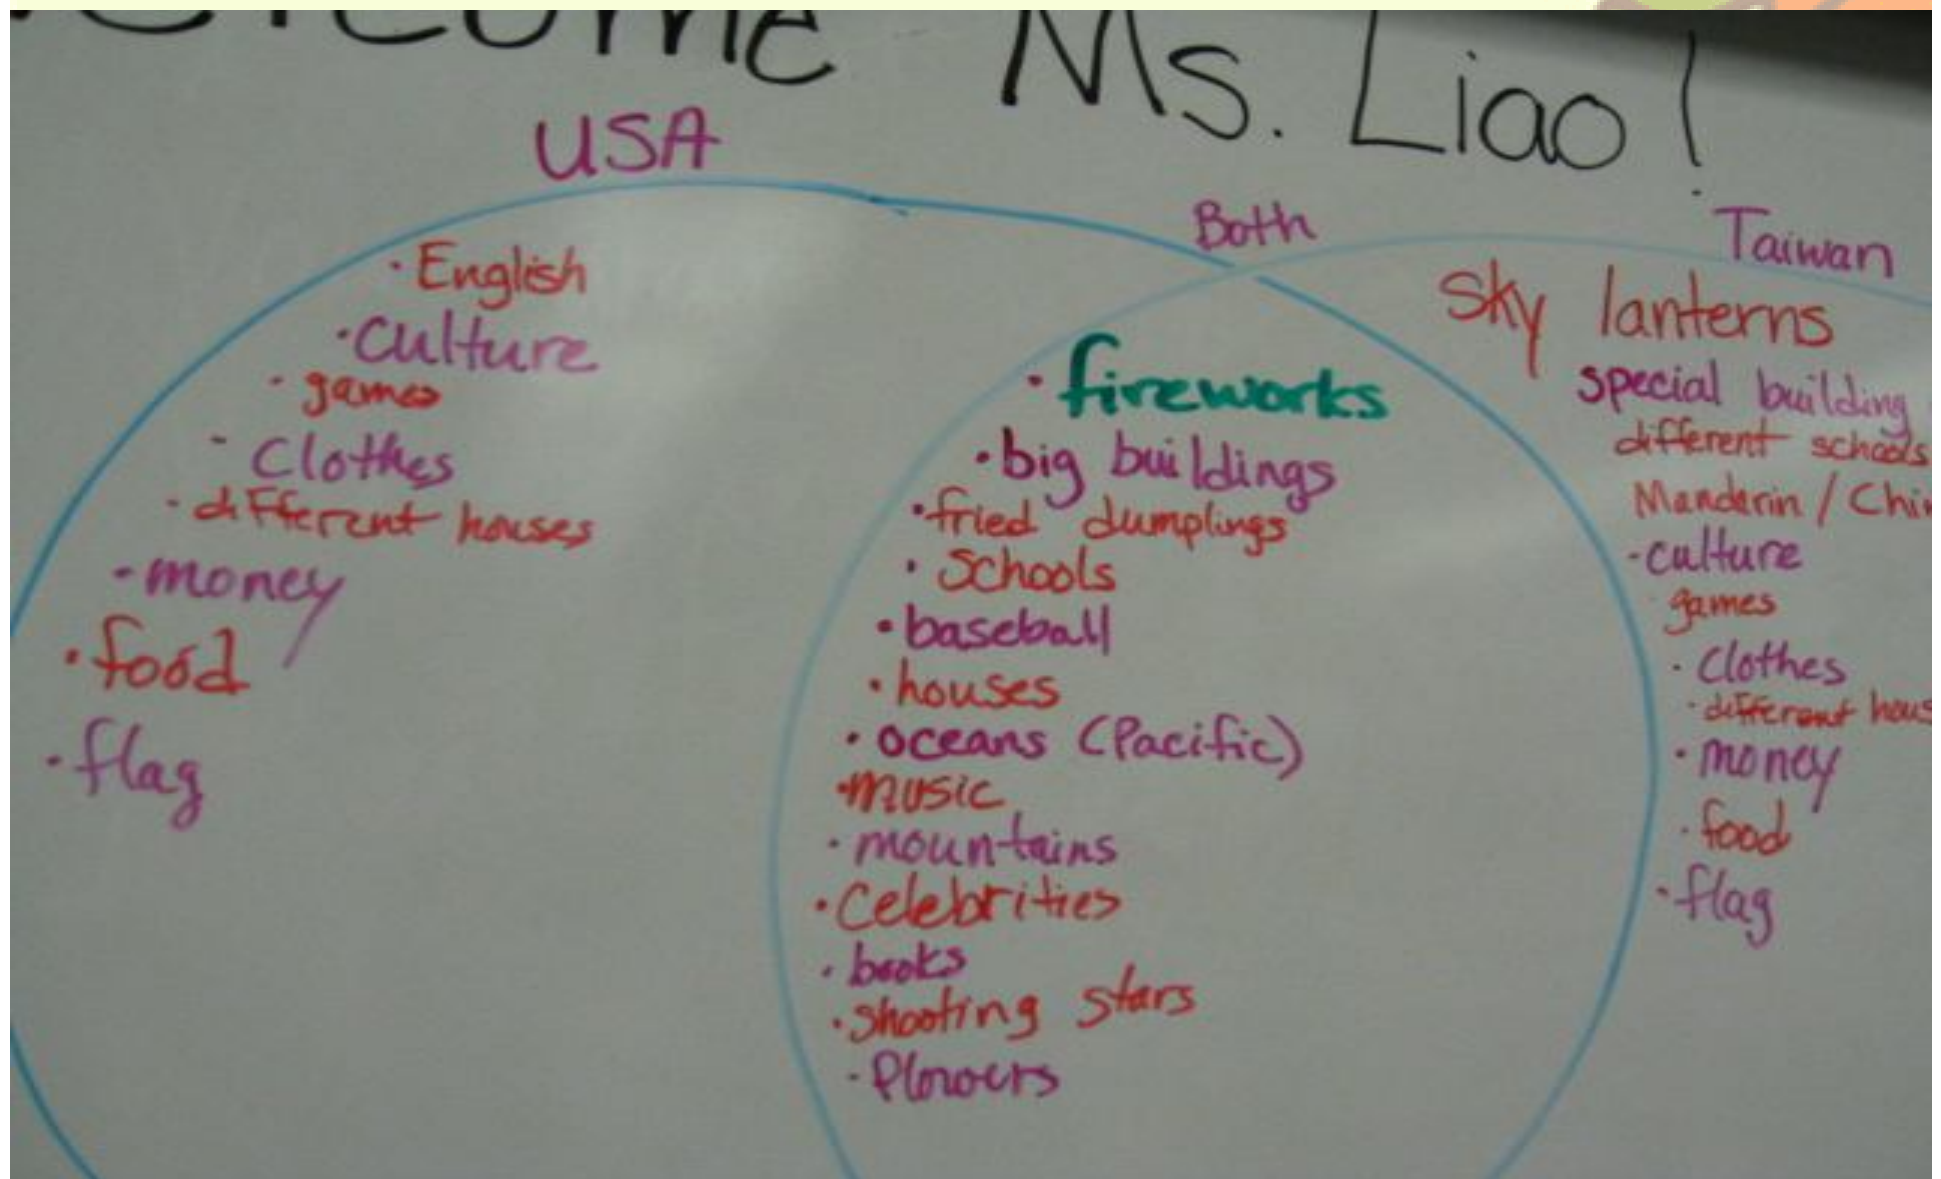 Welcome Ms. Liao!
USA
• English
• Culture
- games
- Clothes
- different houses
- money
• food
• flag
Both
• fireworks
• big buildings
• fried dumplings
• Schools
• baseball
• houses
• oceans (Pacific)
• music
• mountains
• Celebrities
• books
• shooting stars
• flowers
Taiwan
Sky lanterns
special building
different schools
Mandarin / Chin
- culture
games
• Clothes
• different hous
• money
• food
• flag